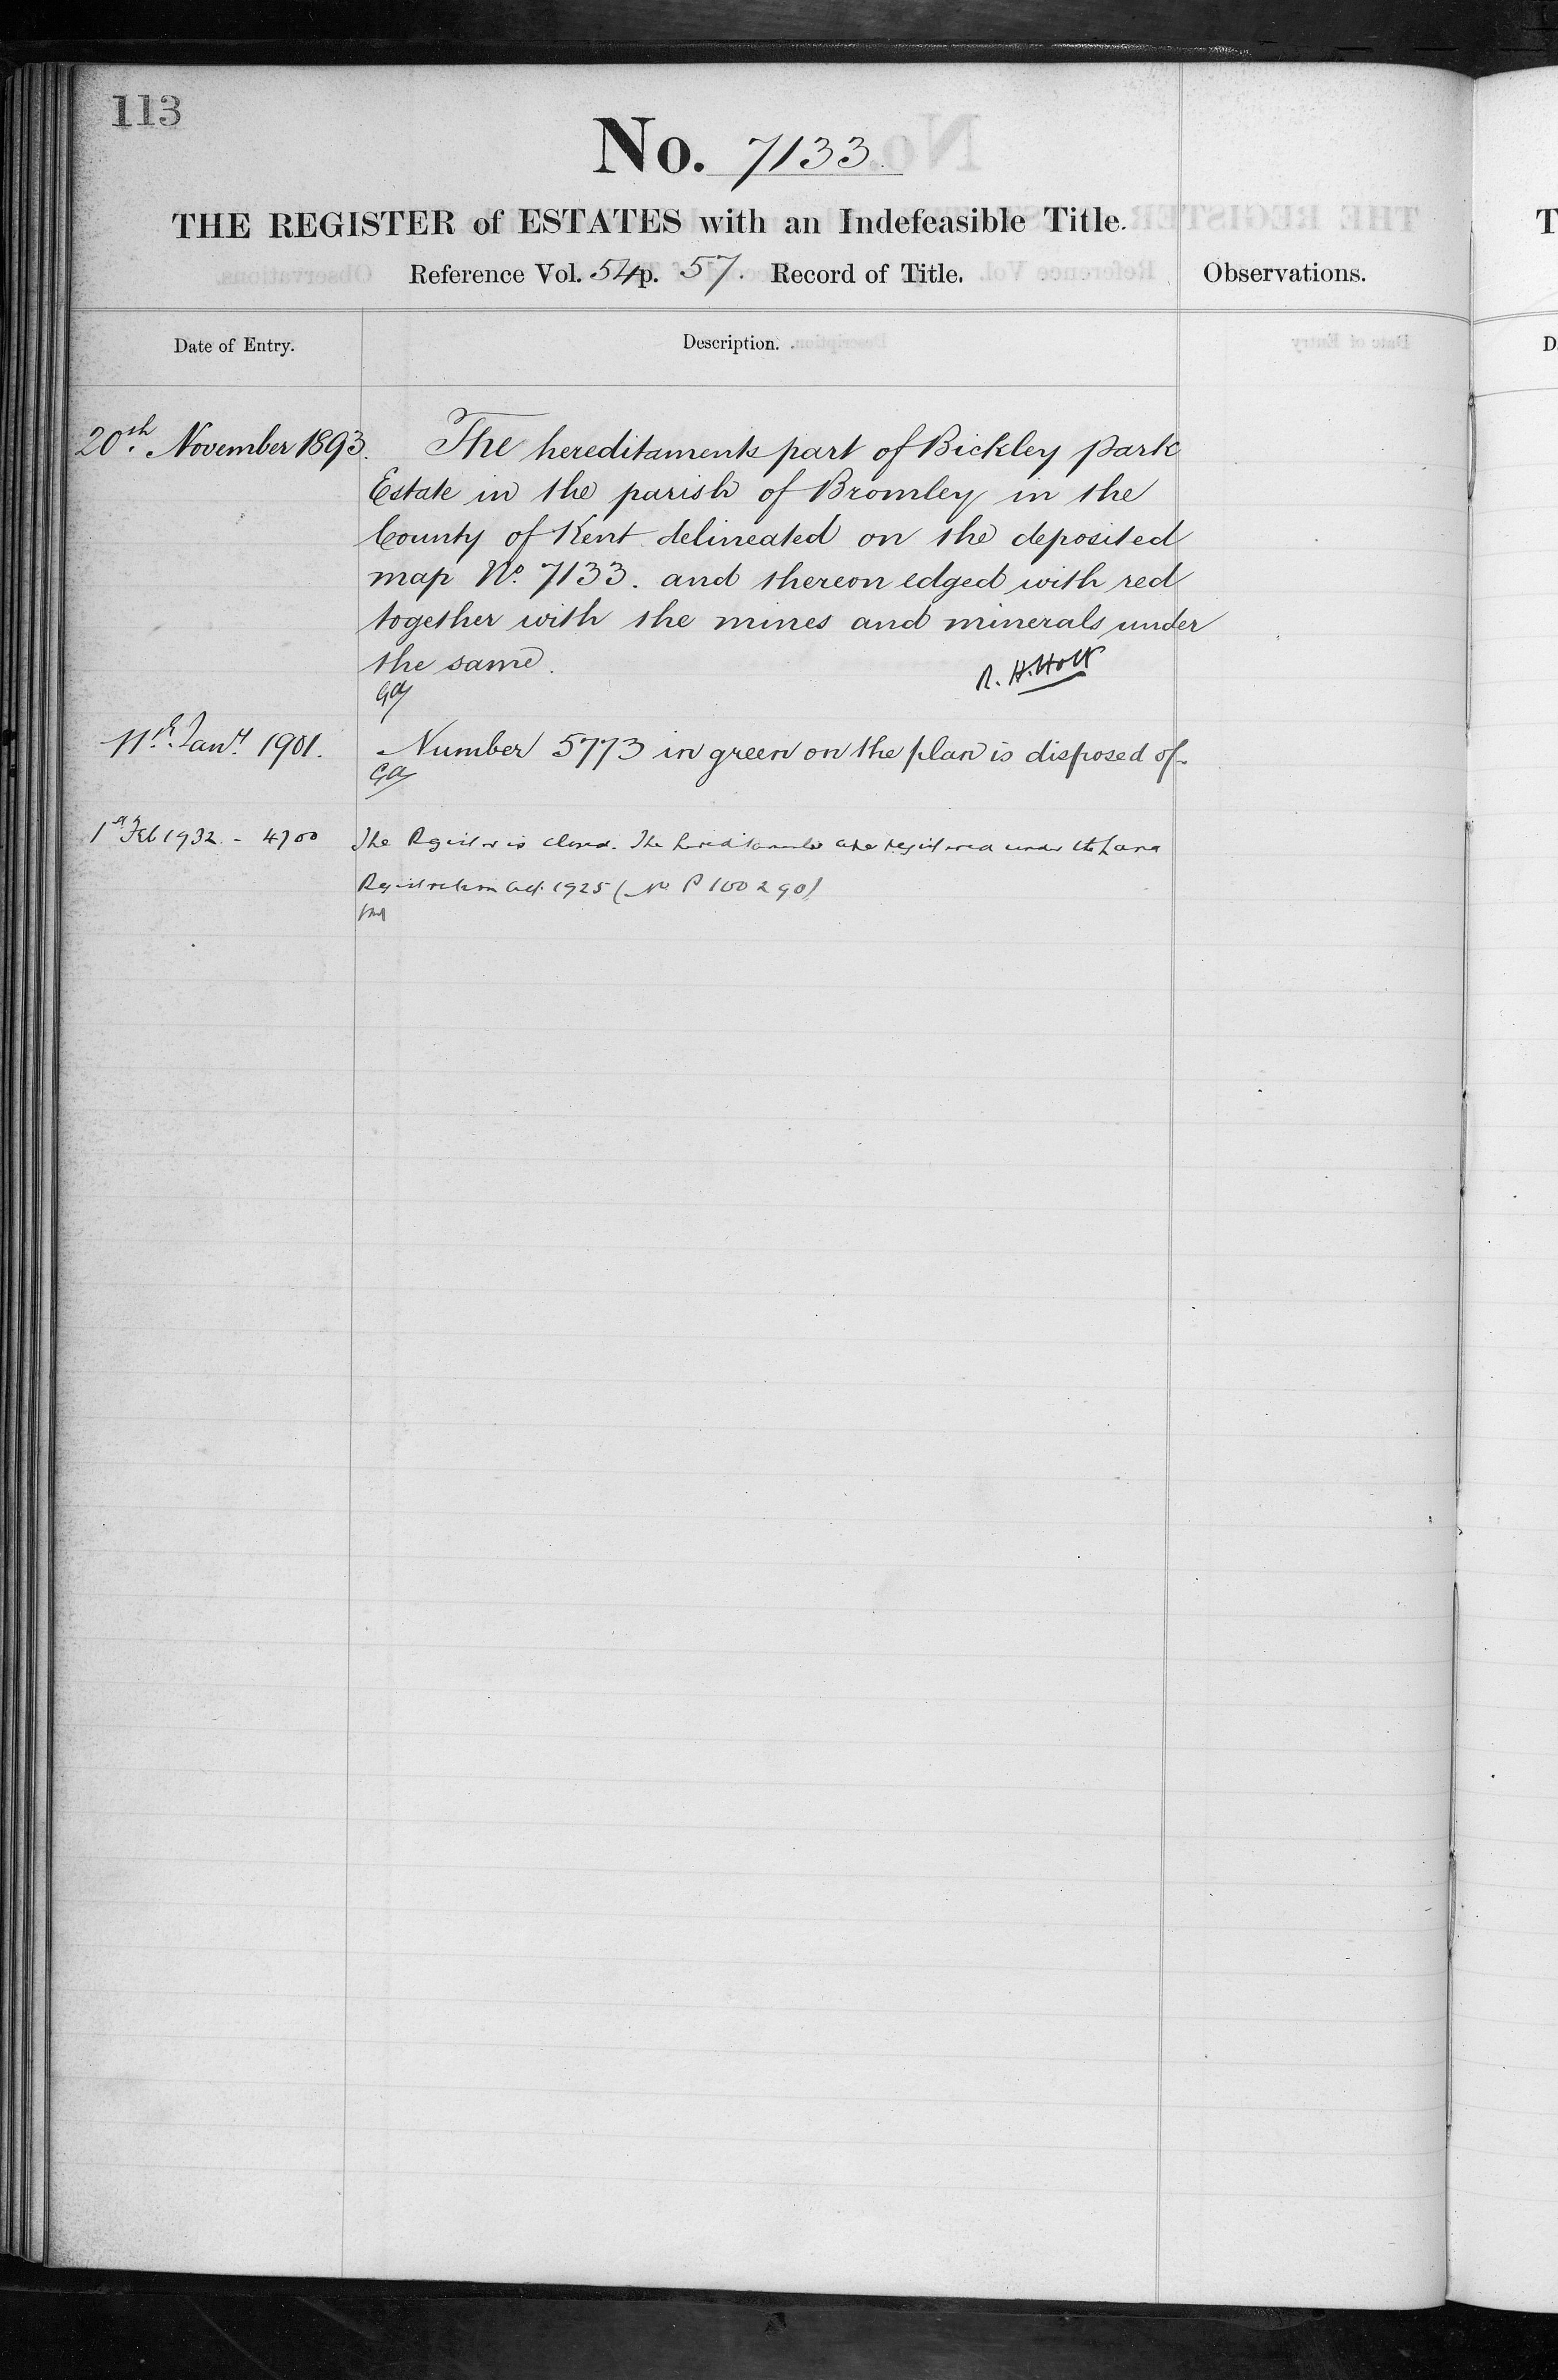 113
No. 7133.
THE REGISTER of ESTATES with an Indefeasible Title.
Reference Vol. 54 p. 57. Record of Title.
Observations.
Date of Entry.
Description.
20th. November 1893.
The hereditaments part of Bickley Park
Estate in the parish of Bromley in the
County of Kent delineated on the deposited
map No. 7133. and thereon edged with red
together with the mines and minerals under
the same.
R. H. Holt
11th. Jany. 1901.
Number 5773 in green on the plan is disposed of.
1st Feb 1932 - 4700
The Register is closed. The hereditaments are registered under the Land
Registration Act. 1925 (No P 100290)
T
D